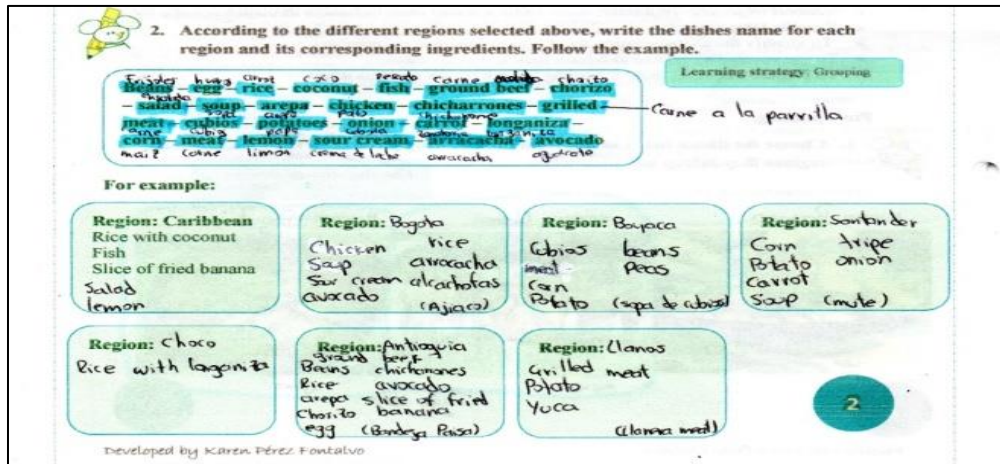 2. According to the different regions selected above, write the dishes name for each
region and its corresponding ingredients. Follow the example.
Learning strategy: Grouping
huevo arroz coco pescado carne molida chorizo
Beans – egg – rice – coconut – fish – ground beef – chorizo
– salad – soup – arepa – chicken – chicharrones – grilled –
Carne a la parrilla
meat – cubios – potatoes – onion – carrot – longaniza –
carne cubio papa cebolla zanahoria longaniza
corn – meat – lemon – sour cream – arracacha – avocado
maiz carne limon crema de leche arracacha
For example:
Region: Caribbean
Rice with coconut
Fish
Slice of fried banana
Salad
lemon
Region: Bogota
Chicken rice
Soup arracacha
Sour cream alcachofas
avocado
(Ajiaco)
Region: Boyaca
Cubios beans
meat Peas
Corn
Potato (sopa de cubios)
Region: Santander
Corn tripe
Potato onion
Carrot
Soup (mute)
Region: Choco
Rice with longaniza
Region: Antioquia
ground beef
Beans chicharrones
Rice avocado
arepa slice of fried
Chorizo banana
egg (Bandeja Paisa)
Region: Llanos
Grilled meat
Potato
Yuca
(Llanera meat)
2
Developed by Karen Pérez Fontalvo